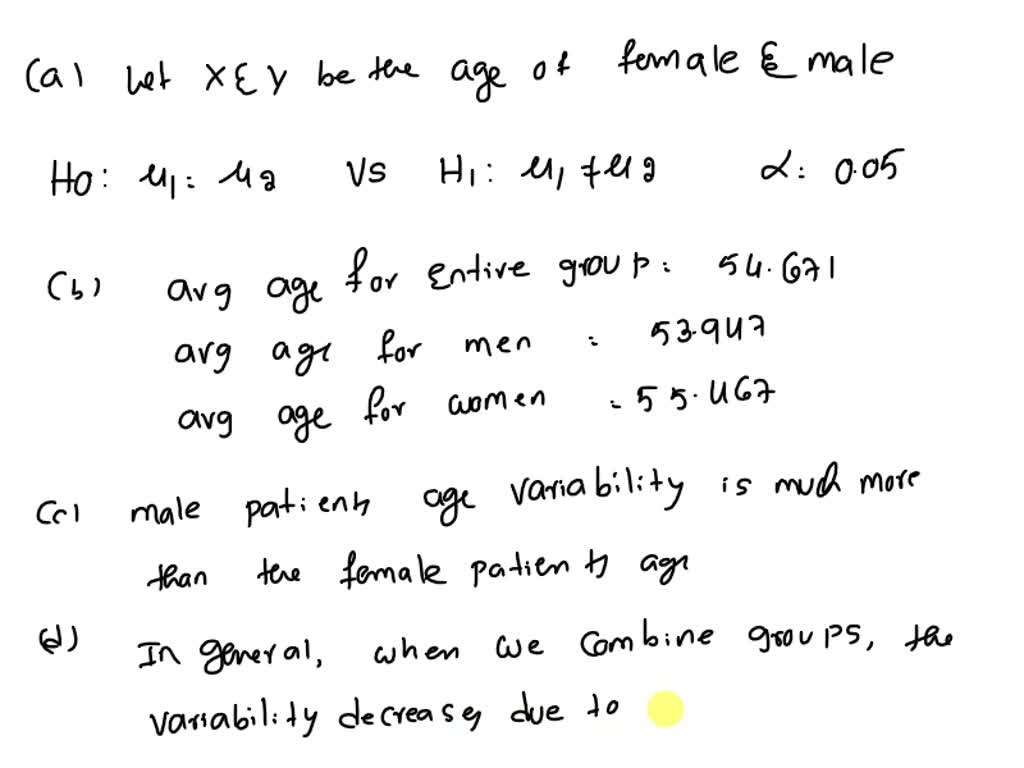 (a) Let X & Y be the age of female & male
H0: μ1 = μ2 VS H1: μ1 ≠ μ2 α: 0.05
(b) avg age for Entire group: 54.671
avg age for men : 53.947
avg age for women : 55.467
(c) male patients age variability is much more
than the female patients age
(d) In general, when we combine groups, the
variability decreases due to